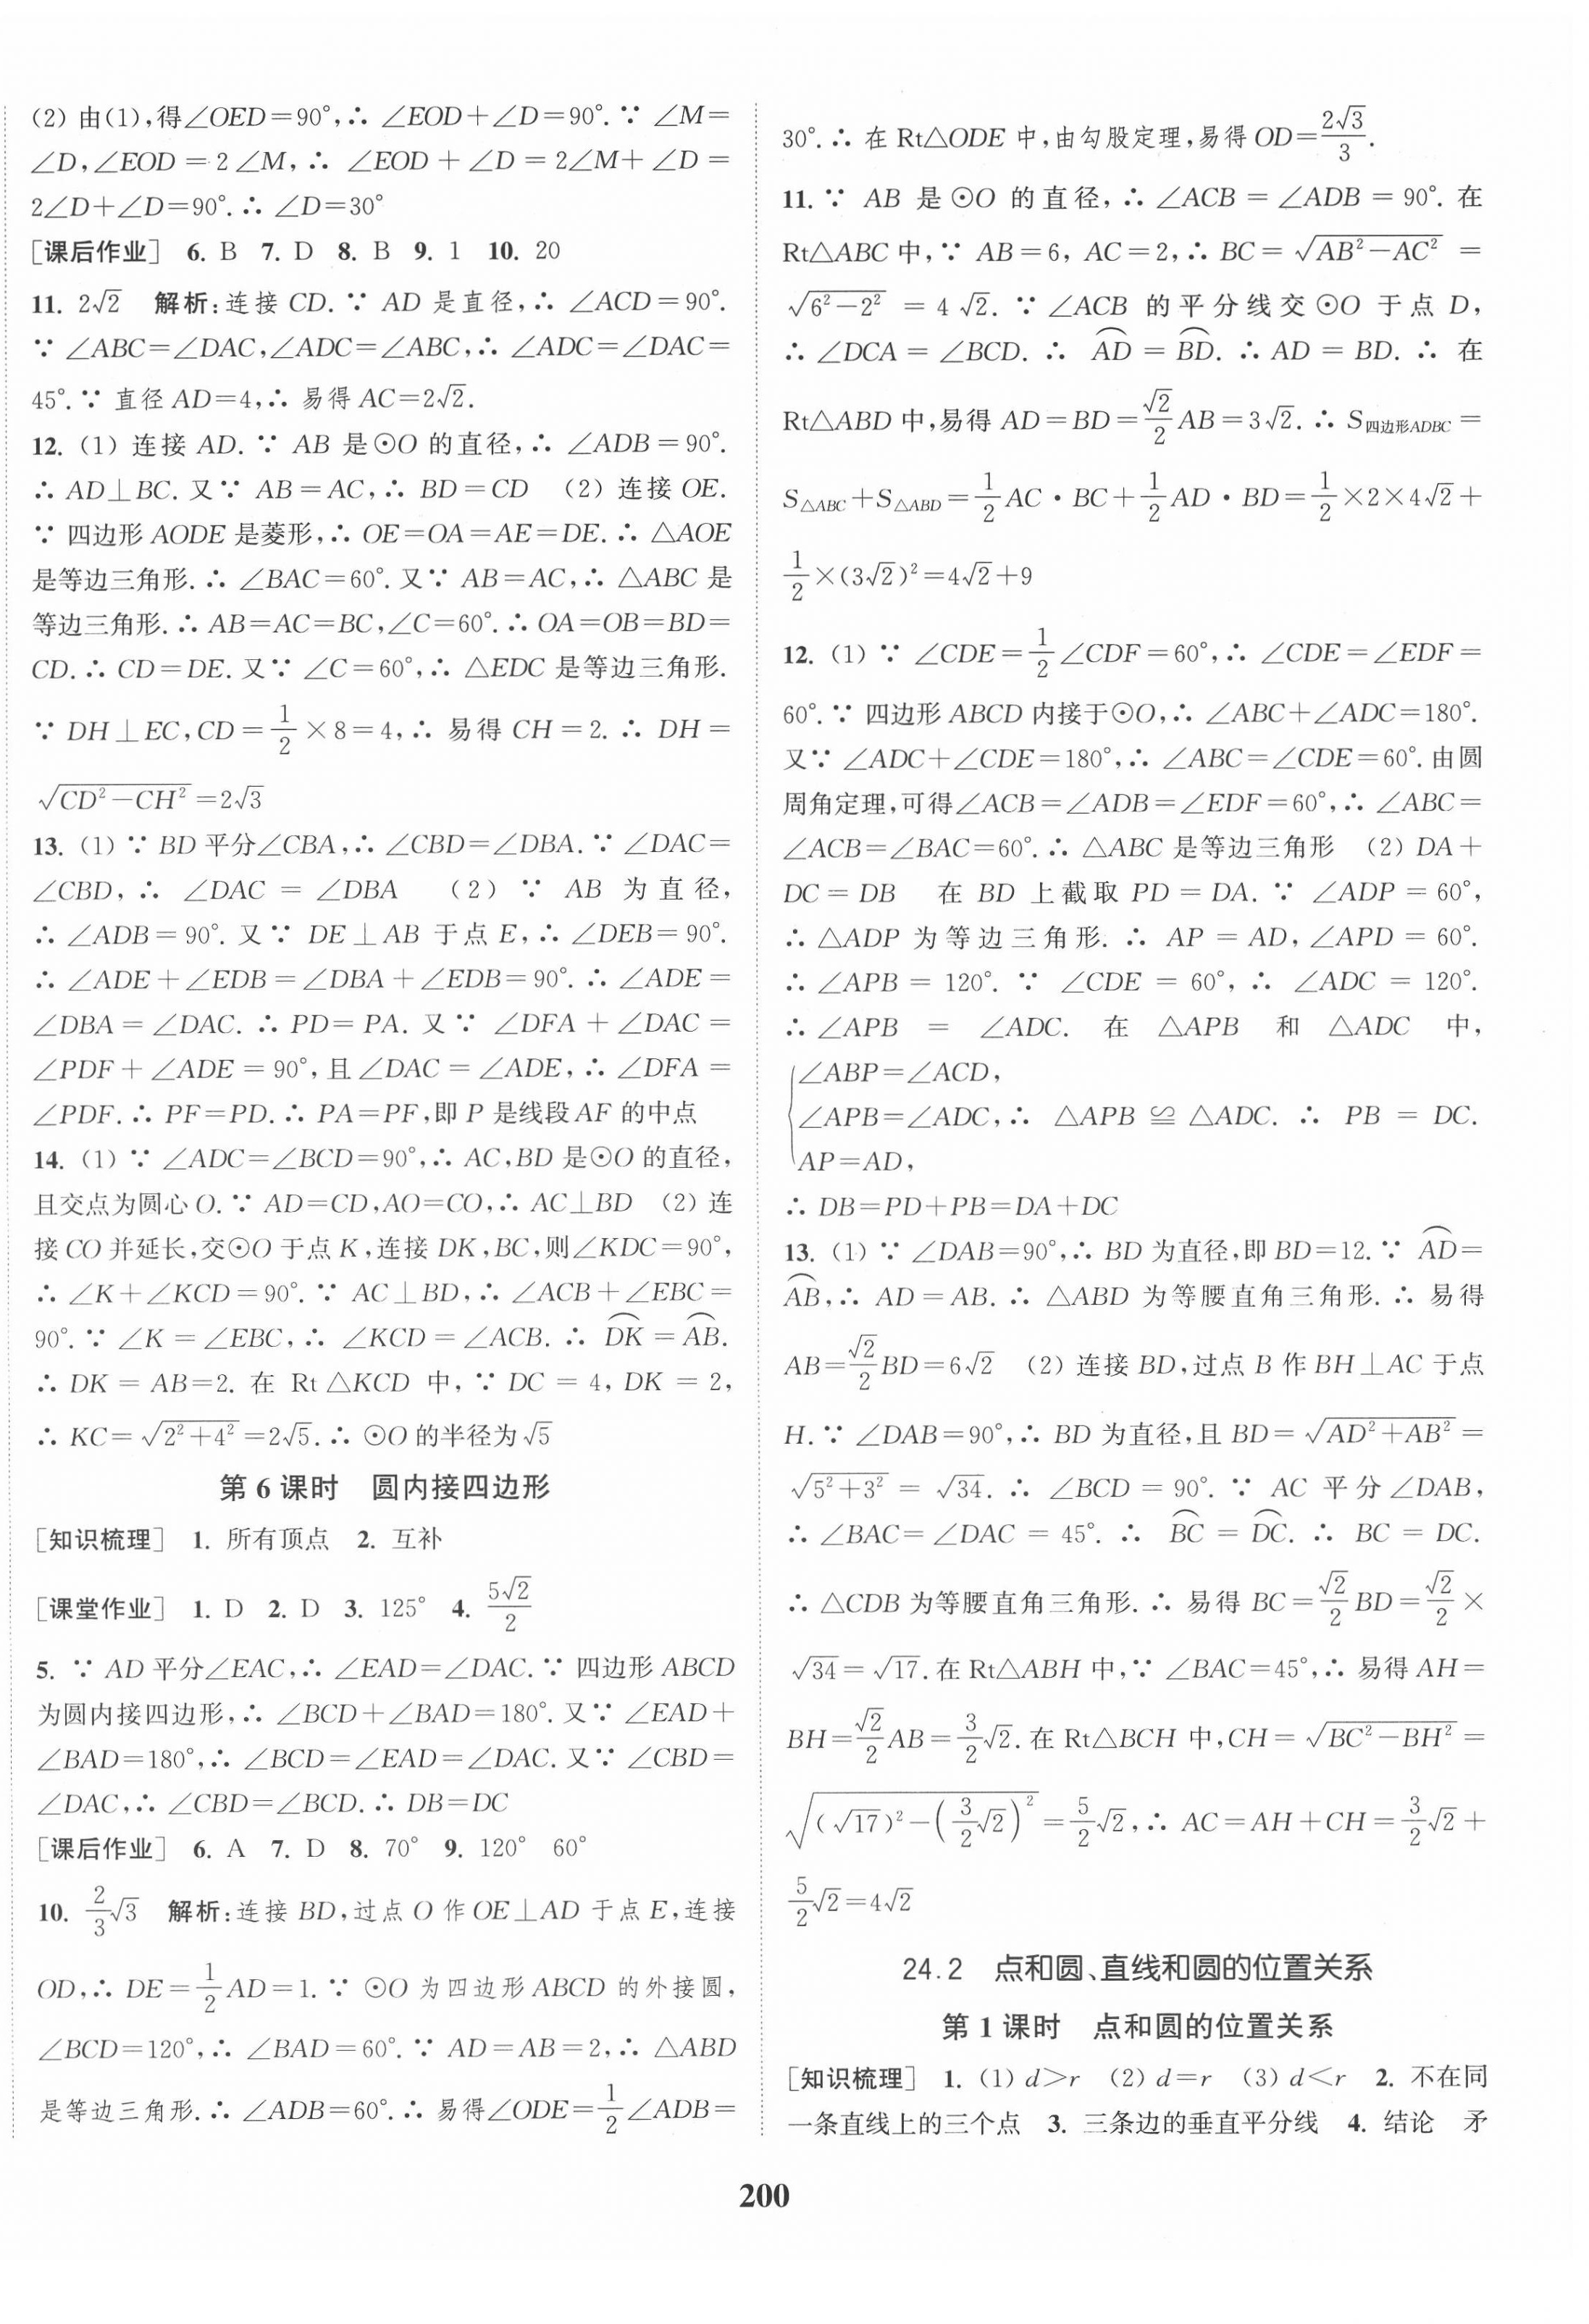 (2) 由(1),得∠OED=90°,∴ ∠EOD+∠D=90°.∵ ∠M=
∠D,∠EOD=2∠M,∴ ∠EOD+∠D=2∠M+∠D=
2∠D+∠D=90°.∴ ∠D=30°
[课后作业] 6. B 7. D 8. B 9. 1 10. 20
11. 2√2 解析:连接 CD.∵ AD 是直径,∴ ∠ACD=90°.
∵ ∠ABC=∠DAC,∠ADC=∠ABC,∴ ∠ADC=∠DAC=
45°.∵ 直径 AD=4,∴ 易得 AC=2√2.
12. (1) 连接 AD.∵ AB 是⊙O 的直径,∴ ∠ADB=90°.
∴ AD⊥BC.又∵ AB=AC,∴ BD=CD (2) 连接 OE.
∵ 四边形 AODE 是菱形,∴ OE=OA=AE=DE.∴ △AOE
是等边三角形.∴ ∠BAC=60°.又∵ AB=AC,∴ △ABC 是
等边三角形.∴ AB=AC=BC,∠C=60°.∴ OA=OB=BD=
CD.∴ CD=DE.又∵ ∠C=60°,∴ △EDC 是等边三角形.
∵ DH⊥EC,CD=1/2×8=4,∴ 易得 CH=2.∴ DH=
√(CD²−CH²)=2√3
13. (1) ∵ BD 平分∠CBA,∴ ∠CBD=∠DBA.∵ ∠DAC=
∠CBD,∴ ∠DAC=∠DBA (2) ∵ AB 为直径,
∴ ∠ADB=90°.又∵ DE⊥AB 于点 E,∴ ∠DEB=90°.
∴ ∠ADE+∠EDB=∠DBA+∠EDB=90°.∴ ∠ADE=
∠DBA=∠DAC.∴ PD=PA.又∵ ∠DFA+∠DAC=
∠PDF+∠ADE=90°,且∠DAC=∠ADE,∴ ∠DFA=
∠PDF.∴ PF=PD.∴ PA=PF,即 P 是线段 AF 的中点
14. (1) ∵ ∠ADC=∠BCD=90°,∴ AC,BD 是⊙O 的直径,
且交点为圆心 O.∵ AD=CD,AO=CO,∴ AC⊥BD (2) 连
接 CO 并延长,交⊙O 于点 K,连接 DK,BC,则∠KDC=90°,
∴ ∠K+∠KCD=90°.∵ AC⊥BD,∴ ∠ACB+∠EBC=
90°.∵ ∠K=∠EBC,∴ ∠KCD=∠ACB.∴ ⌒DK=⌒AB.
∴ DK=AB=2.在 Rt△KCD 中,∵ DC=4,DK=2,
∴ KC=√(2²+4²)=2√5.∴ ⊙O 的半径为√5
第 6 课时 圆内接四边形
[知识梳理] 1. 所有顶点 2. 互补
[课堂作业] 1. D 2. D 3. 125° 4. 5√2/2
5. ∵ AD 平分∠EAC,∴ ∠EAD=∠DAC.∵ 四边形 ABCD
为圆内接四边形,∴ ∠BCD+∠BAD=180°.又∵ ∠EAD+
∠BAD=180°,∴ ∠BCD=∠EAD=∠DAC.又∵ ∠CBD=
∠DAC,∴ ∠CBD=∠BCD.∴ DB=DC
[课后作业] 6. A 7. D 8. 70° 9. 120° 60°
10. 2/3√3 解析:连接 BD,过点 O 作 OE⊥AD 于点 E,连接
OD,∴ DE=1/2AD=1.∵ ⊙O 为四边形 ABCD 的外接圆,
∠BCD=120°,∴ ∠BAD=60°.∵ AD=AB=2,∴ △ABD
是等边三角形.∴ ∠ADB=60°.∴ 易得∠ODE=1/2∠ADB=
30°.∴ 在 Rt△ODE 中,由勾股定理,易得 OD=2√3/3.
11. ∵ AB 是⊙O 的直径,∴ ∠ACB=∠ADB=90°.在
Rt△ABC 中,∵ AB=6,AC=2,∴ BC=√(AB²−AC²)=
√(6²−2²)=4√2.∵ ∠ACB 的平分线交⊙O 于点 D,
∴ ∠DCA=∠BCD.∴ ⌒AD=⌒BD.∴ AD=BD.∴ 在
Rt△ABD 中,易得 AD=BD=√2/2AB=3√2.∴ S四边形ADBC=
S△ABC+S△ABD=1/2AC·BC+1/2AD·BD=1/2×2×4√2+
1/2×(3√2)²=4√2+9
12. (1) ∵ ∠CDE=1/2∠CDF=60°,∴ ∠CDE=∠EDF=
60°.∵ 四边形 ABCD 内接于⊙O,∴ ∠ABC+∠ADC=180°.
又∵ ∠ADC+∠CDE=180°,∴ ∠ABC=∠CDE=60°.由圆
周角定理,可得∠ACB=∠ADB=∠EDF=60°,∴ ∠ABC=
∠ACB=∠BAC=60°.∴ △ABC 是等边三角形 (2) DA+
DC=DB 在 BD 上截取 PD=DA.∵ ∠ADP=60°,
∴ △ADP 为等边三角形.∴ AP=AD,∠APD=60°.
∴ ∠APB=120°.∵ ∠CDE=60°,∴ ∠ADC=120°.
∴ ∠APB=∠ADC.在 △APB 和 △ADC 中,
∠ABP=∠ACD,
∠APB=∠ADC,∴ △APB≌△ADC.∴ PB=DC.
AP=AD,
∴ DB=PD+PB=DA+DC
13. (1) ∵ ∠DAB=90°,∴ BD 为直径,即 BD=12.∵ ⌒AD=
⌒AB,∴ AD=AB.∴ △ABD 为等腰直角三角形.∴ 易得
AB=√2/2BD=6√2 (2) 连接 BD,过点 B 作 BH⊥AC 于点
H.∵ ∠DAB=90°,∴ BD 为直径,且 BD=√(AD²+AB²)=
√(5²+3²)=√34.∴ ∠BCD=90°.∵ AC 平分∠DAB,
∴ ∠BAC=∠DAC=45°.∴ ⌒BC=⌒DC.∴ BC=DC.
∴ △CDB 为等腰直角三角形.∴ 易得 BC=√2/2BD=√2/2×
√34=√17.在 Rt△ABH 中,∵ ∠BAC=45°,∴ 易得 AH=
BH=√2/2AB=3/2√2.在 Rt△BCH 中,CH=√(BC²−BH²)=
√((√17)²−(3/2√2)²)=5/2√2,∴ AC=AH+CH=3/2√2+
5/2√2=4√2
24.2 点和圆、直线和圆的位置关系
第 1 课时 点和圆的位置关系
[知识梳理] 1. (1) d>r (2) d=r (3) d<r 2. 不在同
一条直线上的三个点 3. 三条边的垂直平分线 4. 结论 矛
200